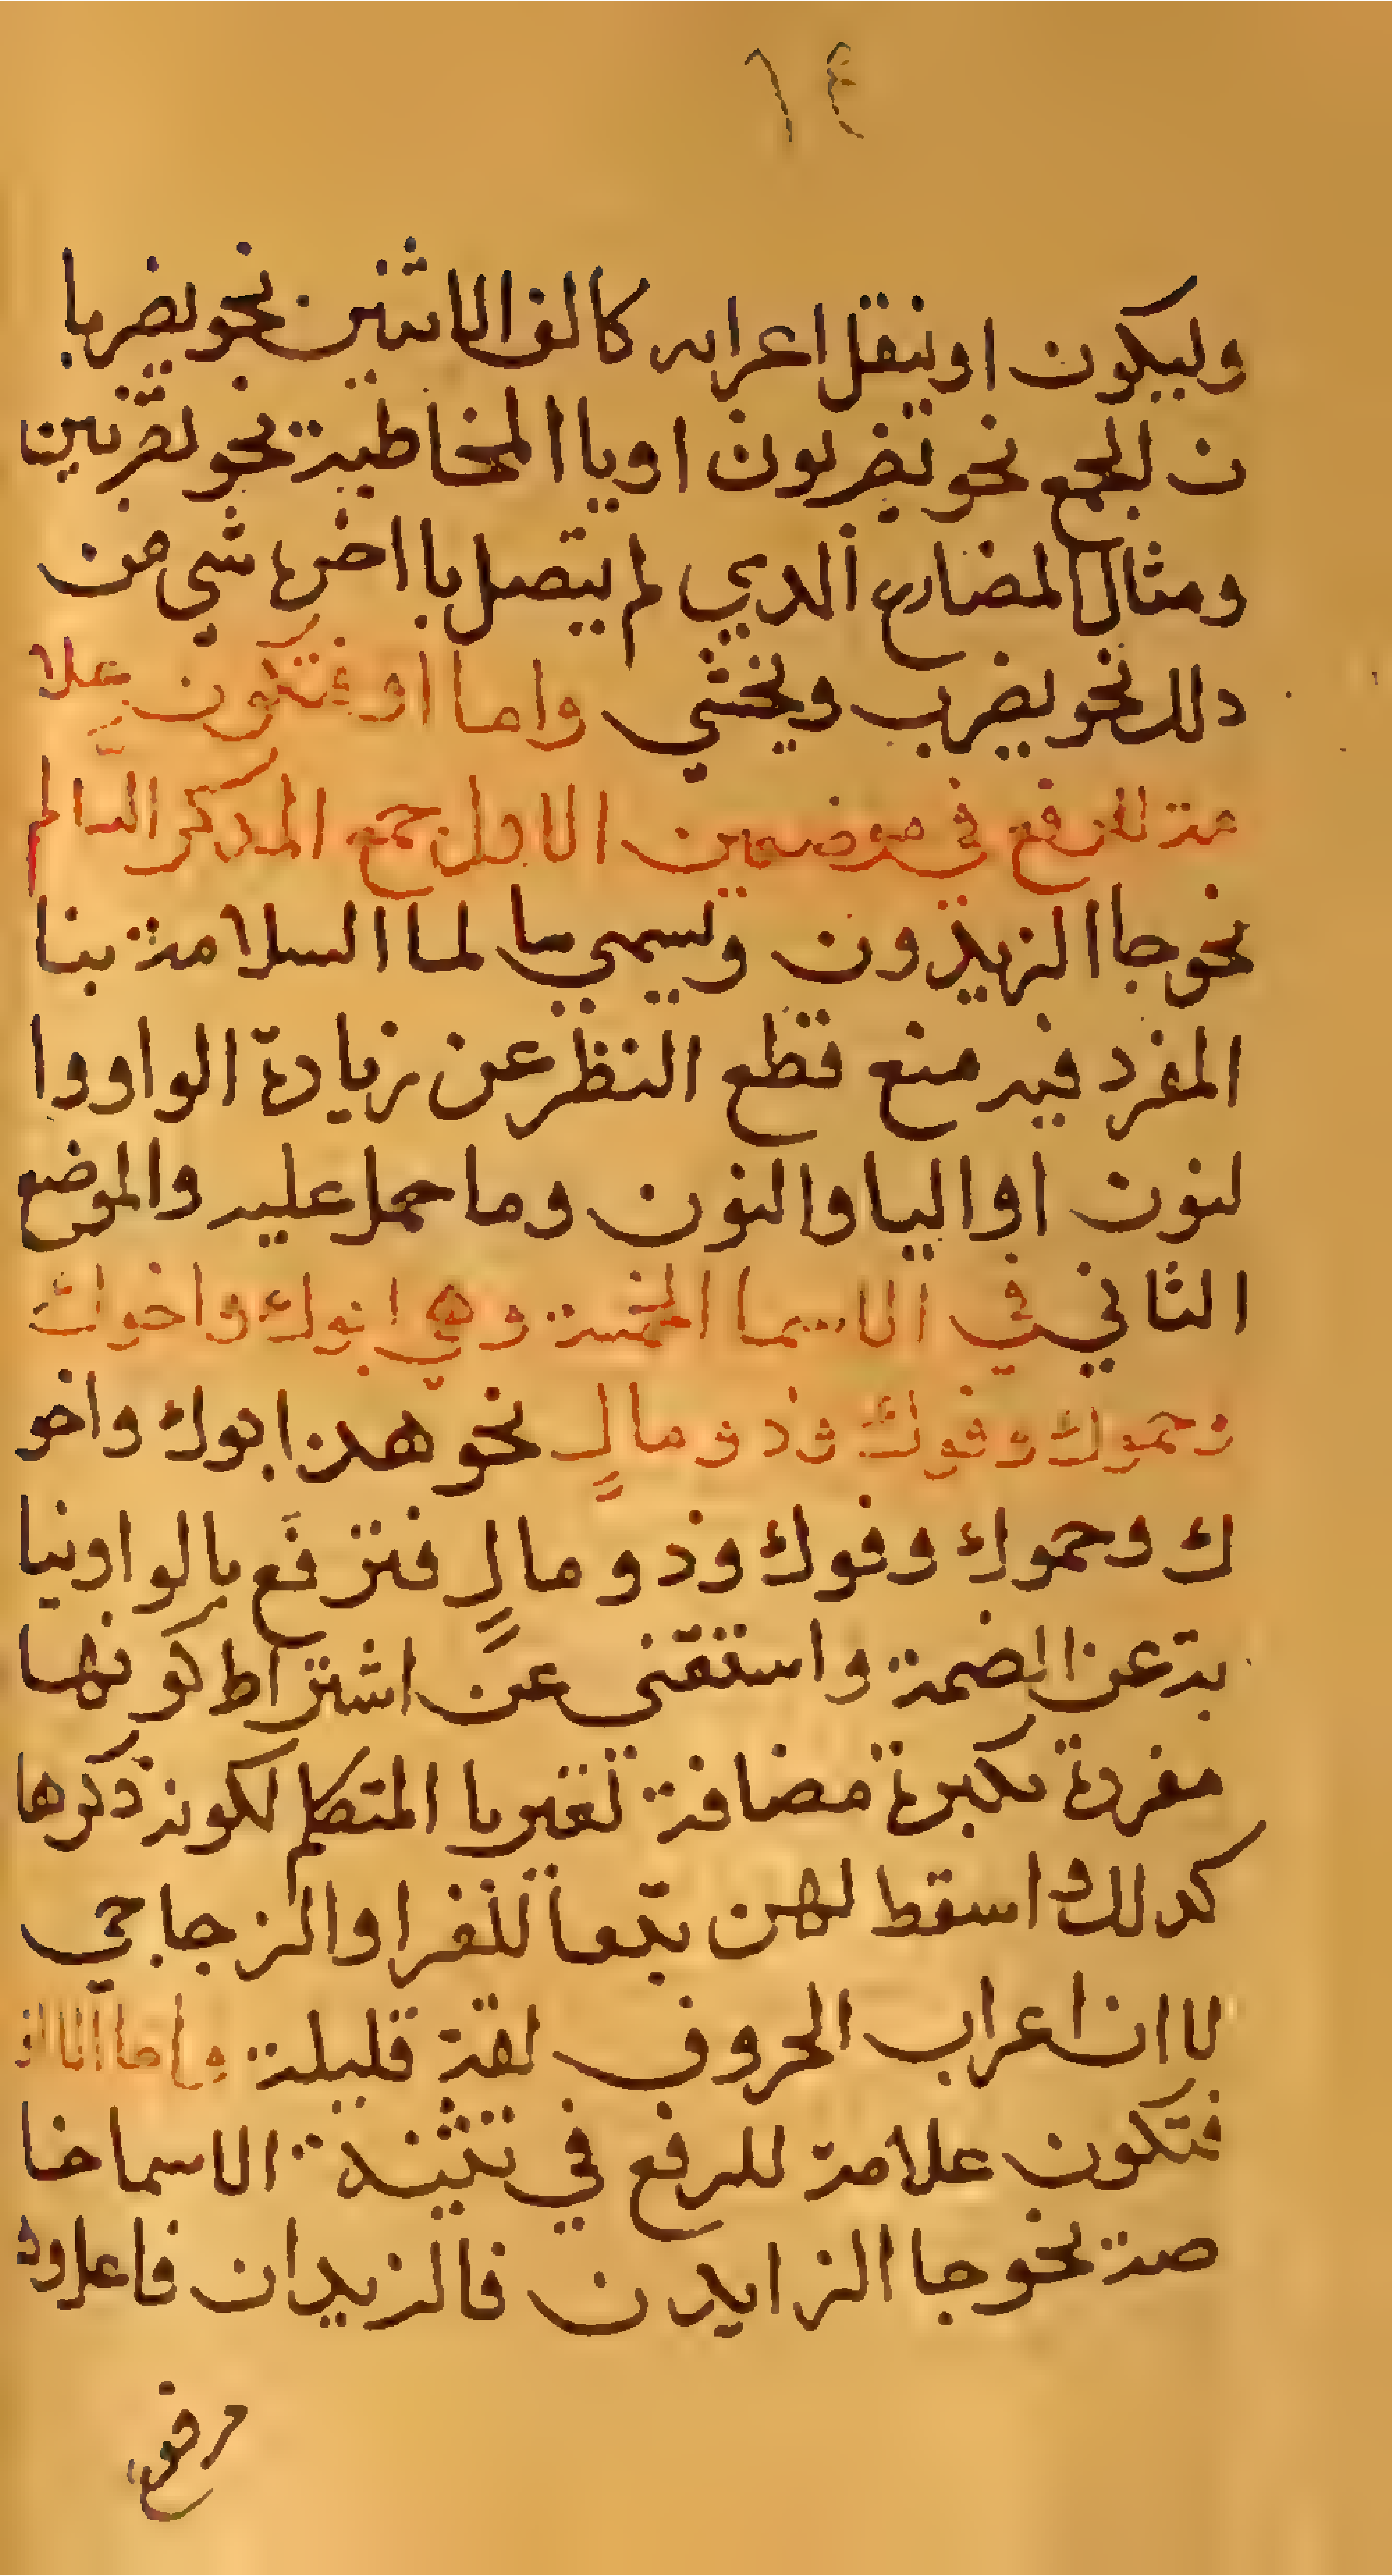 ١٤
وليكون او ينقل اعرابه كالف الاثنين نحو يضربا
ن الجمع نحو يضربون او يا المخاطبة نحو تضربين
ومثال المضارع الدي لم يتصل باخره شي من
دلك نحو يضرب ويخشي واما الواو فتكون علا
مة للرفع في موضعين الاول جمع المدكر السالم
نحو جا الزيدون ويسمي سالما السلامة بنا
المفرد فيه منع قطع النظر عن زيادة الواو وا
لنون او اليا والنون وما حمل عليه والموضع
الثاني في الاسما الخمسة وهي ابوك واخوك
وحموك وفوك وذو مالٍ نحو هدا ابوك واخو
ك وحموك وفوك وذو مالٍ فترفع بالواو نيا
بة عن الضمة واستغني عن اشتراط كونها
مفردة مكبرة مضافة لغير يا المتكلم لكونه ذكرها
كدلك واسقط لهن تبعا للفرا والزجاجي
لا ان اعراب الحروف لغة قليلة واما الالف
فتكون علامة للرفع في تثنية الاسما خا
صة نحو جا الزايدن فالزيدان فاعل وه
مرفوع